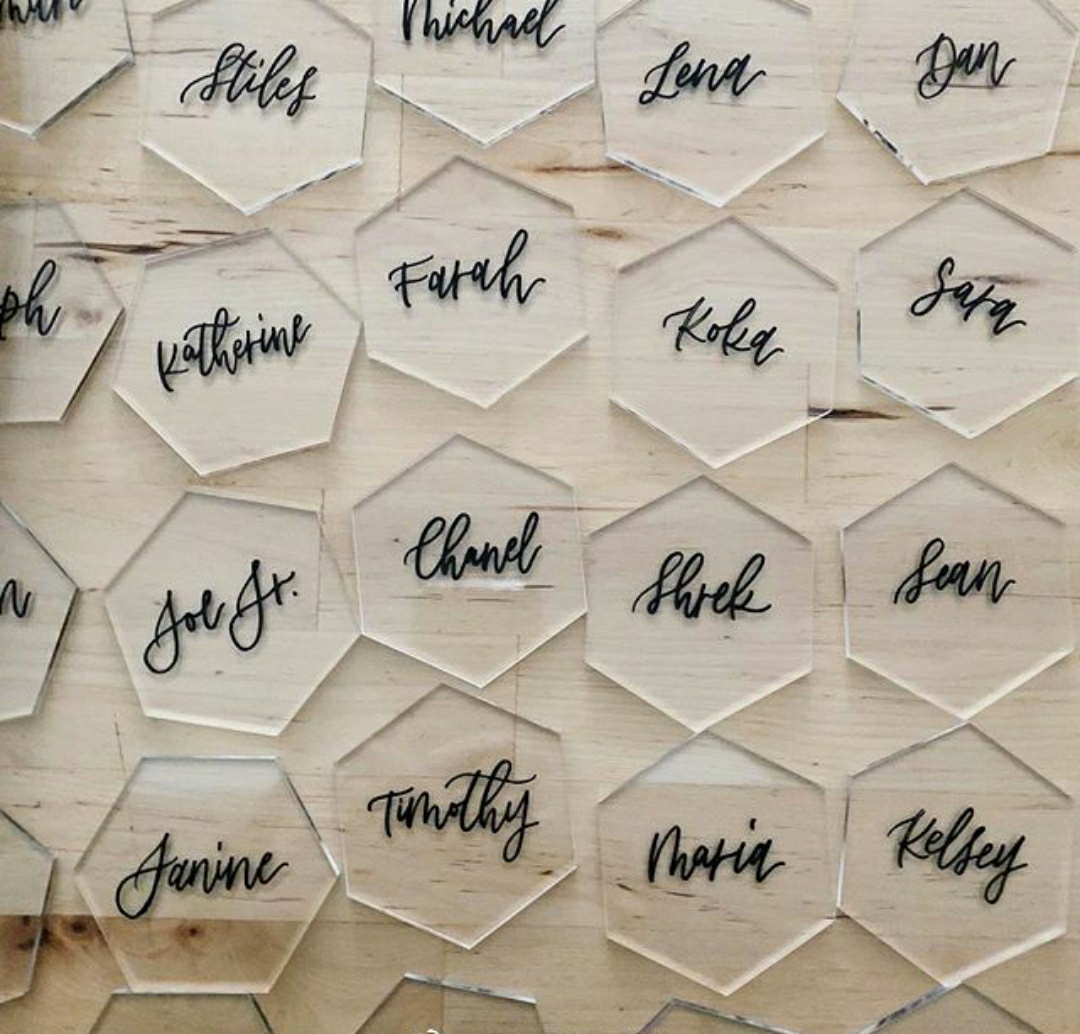 Stiles
Michael
Lena
Dan
ph
Katherine
Farah
Koka
Sara
n
Joe Jr.
Chanel
Shrek
Sean
Janine
Timothy
Maria
Kelsey